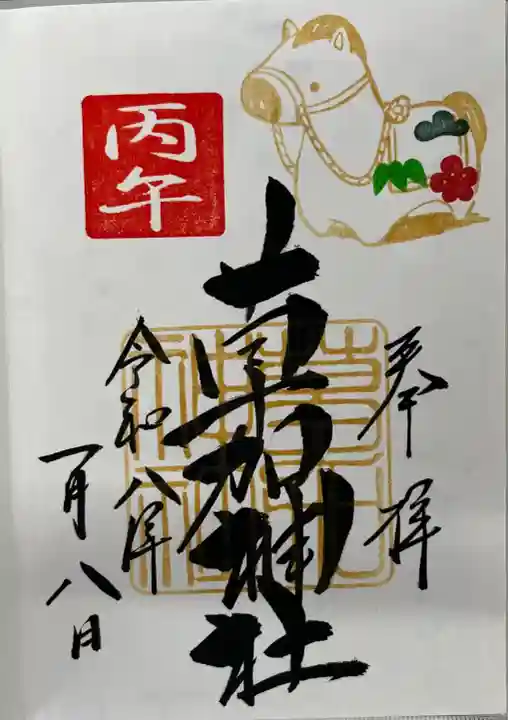 丙午
奉拝
草加神社
令和八年
一月八日